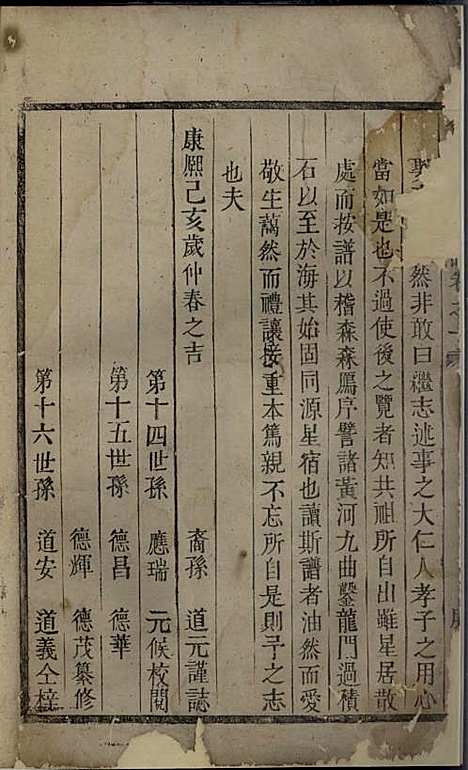 然非敢曰繼志述事之大仁人孝子之用心
當如是也不過使後之覽者知共祖所自出雖星居散
處而按譜以稽森森鴈序譬諸黃河九曲鑿龍門過積
石以至於海其始固同源星宿也讀斯譜者油然而愛
敬生藹然而禮讓接重本篤親不忘所自是則予之志
也夫
康熙己亥歲仲春之吉
裔孫 道元謹誌
第十四世孫 應瑞 元候校閱
第十五世孫 德昌 德華
德輝 德茂纂修
第十六世孫 道安 道義仝梓